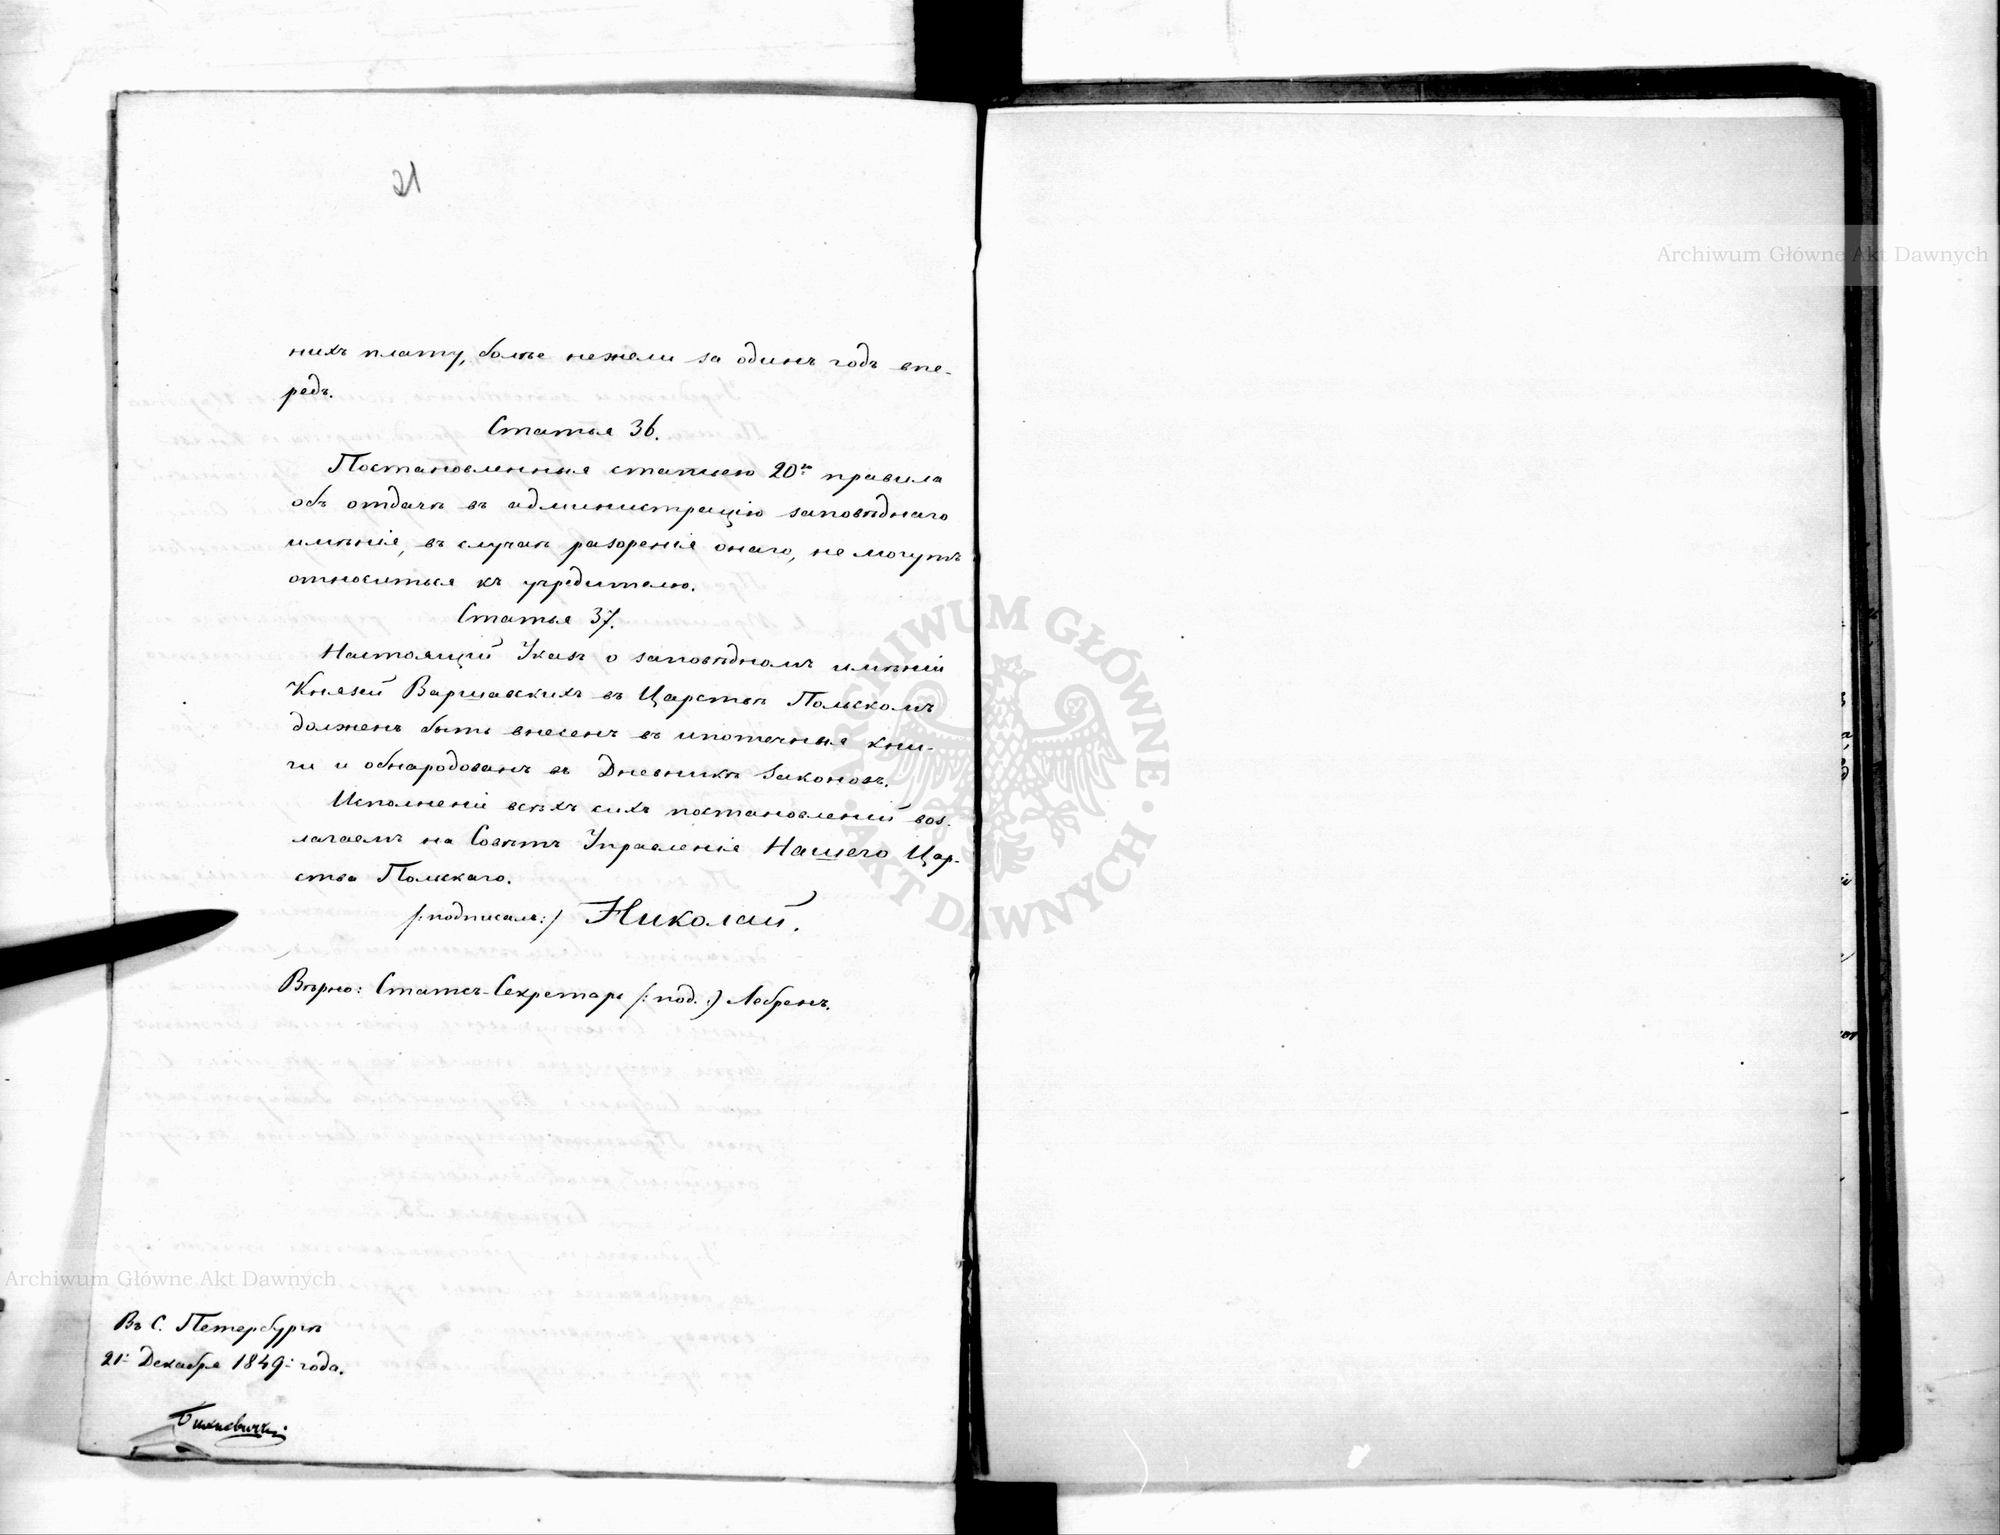 21
нихъ плату, болѣе нежели за одинъ годъ впе-
редъ.
Статья 36.
Постановленныя статьею 20ю правила
объ отдачѣ въ администрацію заповѣднаго
имѣнія, въ случаѣ разоренія онаго, не могутъ
относиться къ учредителю.
Статья 37.
Настоящій Указъ о заповѣдномъ имѣніи
Князей Варшавскихъ въ Царствѣ Польскомъ
долженъ быть внесенъ въ ипотечныя кни-
ги и обнародованъ въ Дневникѣ Законовъ.
Исполненіе всѣхъ сихъ постановленій воз-
лагаемъ на Совѣтъ Управленія Нашего Цар-
ства Польскаго.
/:подписалъ:/ Николай.
Вѣрно: Статсъ-Секретарь /:под.:/ Лебренъ.
Въ С. Петербургѣ
21: Декабря 1849: года.
Archiwum Główne Akt Dawnych
Archiwum Główne Akt Dawnych
ARCHIWUM GŁÓWNE
AKT DAWNYCH